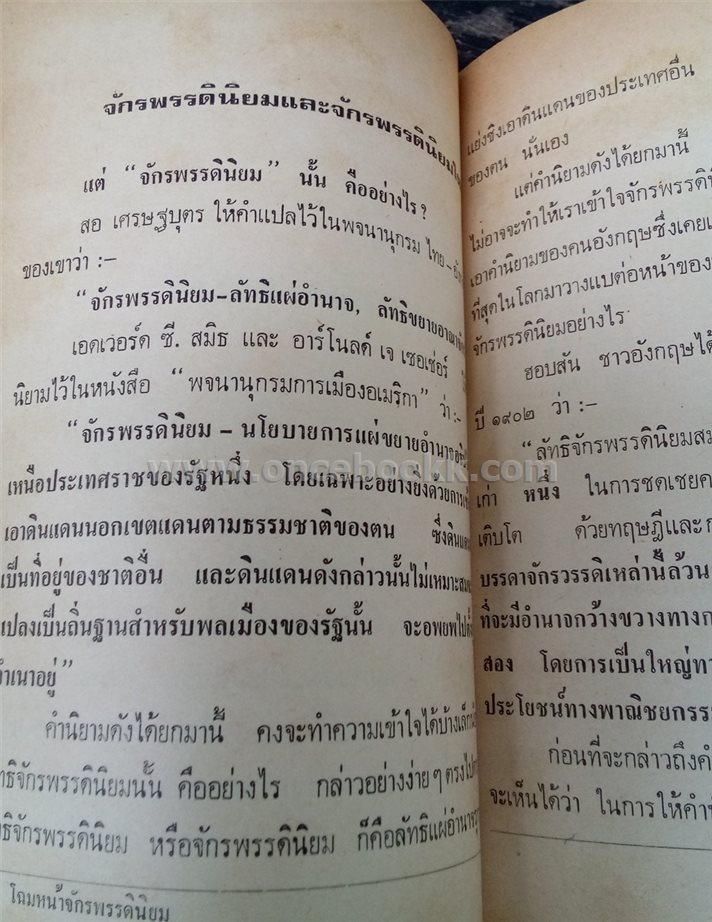 จักรพรรดินิยมและจักรพรรดินิยม
แต่ “จักรพรรดินิยม” นั้น คืออย่างไร?
สอ เศรษฐบุตร ให้คำแปลไว้ในพจนานุกรม ไทย–
ของเขาว่า :–
“จักรพรรดินิยม–ลัทธิแผ่อำนาจ, ลัทธิขยายอาณา
เอดเวอร์ด ซี. สมิธ และ อาร์โนลด์ เจ เซอเช่อร์
นิยามไว้ในหนังสือ “พจนานุกรมการเมืองอเมริกา” ว่า :–
“จักรพรรดินิยม – นโยบายการแผ่ขยายอำนาจ
เหนือประเทศราชของรัฐหนึ่ง โดยเฉพาะอย่างยิ่งด้วยการ
เอาดินแดนนอกเขตแดนตามธรรมชาติของตน ซึ่งดินแดน
เป็นที่อยู่ของชาติอื่น และดินแดนดังกล่าวนั้นไม่เหมาะสม
แปลงเป็นถิ่นฐานสำหรับพลเมืองของรัฐนั้น จะอพยพไปตั้ง
อยู่”
คำนิยามดังได้ยกมานี้ คงจะทำความเข้าใจได้บ้างเล็ก
จักรพรรดินิยมนั้น คืออย่างไร กล่าวอย่างง่ายๆ ตรงไป
จักรพรรดินิยม หรือจักรพรรดินิยม ก็คือลัทธิแผ่อำนาจ
โฉมหน้าจักรพรรดินิยม
แย่งชิงเอาดินแดนของประเทศอื่น
ของตน นั่นเอง
แต่คำนิยามดังได้ยกมานี้
ไม่อาจจะทำให้เราเข้าใจจักรพรรดิ
เอาคำนิยามของคนอังกฤษซึ่งเคย
ที่สุดในโลกมาวางแบต่อหน้าของ
จักรพรรดินิยมอย่างไร
ฮอบสัน ชาวอังกฤษได้
ปี ๑๙๐๒ ว่า :–
“ลัทธิจักรพรรดินิยม
เก่า หนึ่ง ในการชดเชย
เติบโต ด้วยทฤษฎีและ
บรรดาจักรวรรดิเหล่านี้ล้วน
ที่จะมีอำนาจกว้างขวางทาง
สอง โดยการเป็นใหญ่ทาง
ประโยชน์ทางพาณิชยกรรม
ก่อนที่จะกล่าวถึง
จะเห็นได้ว่า ในการให้คำ
www.oncebookk.com